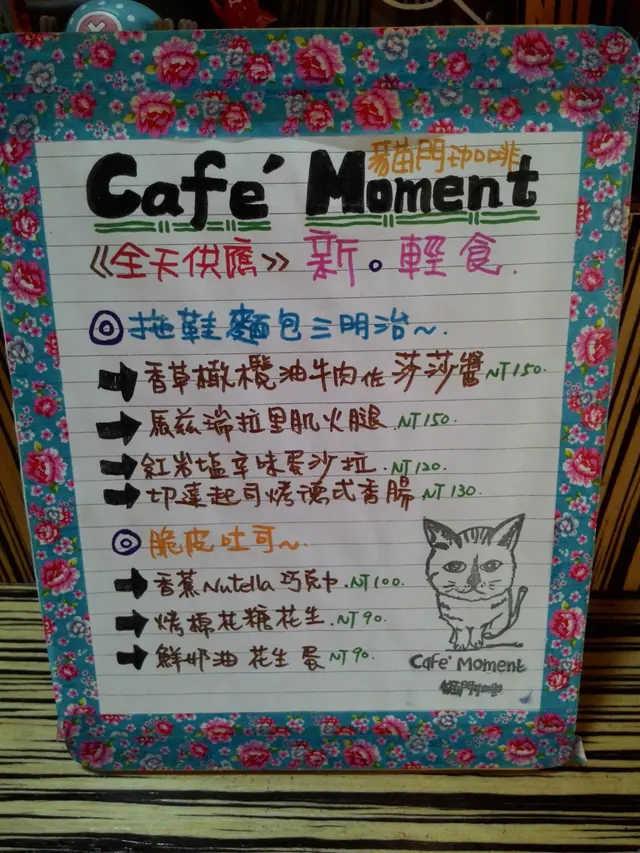 貓門咖啡
Café Moment
《全天供應》新。輕食.
拖鞋麵包三明治~.
香草橄欖油牛肉佐莎莎醬 NT150.
馬茲瑞拉里肌火腿.NT150.
紅岩塩辛味蛋沙拉.NT120.
切達起司烤德式香腸 NT130.
脆皮吐司~.
香蕉Nutella巧克力.NT100.
烤棉花糖花生.NT90.
鮮奶油花生蛋 NT90.
Café Moment
貓門咖啡